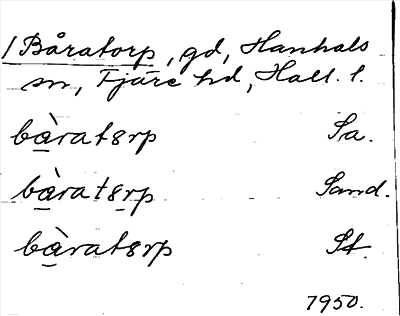 / Båratorp, gd, Hanhals
sn, Fjäre hd, Hall. l.
bàratɜrp Sa.
bàratɜrp Sand.
bàratɜrp St.
1950.